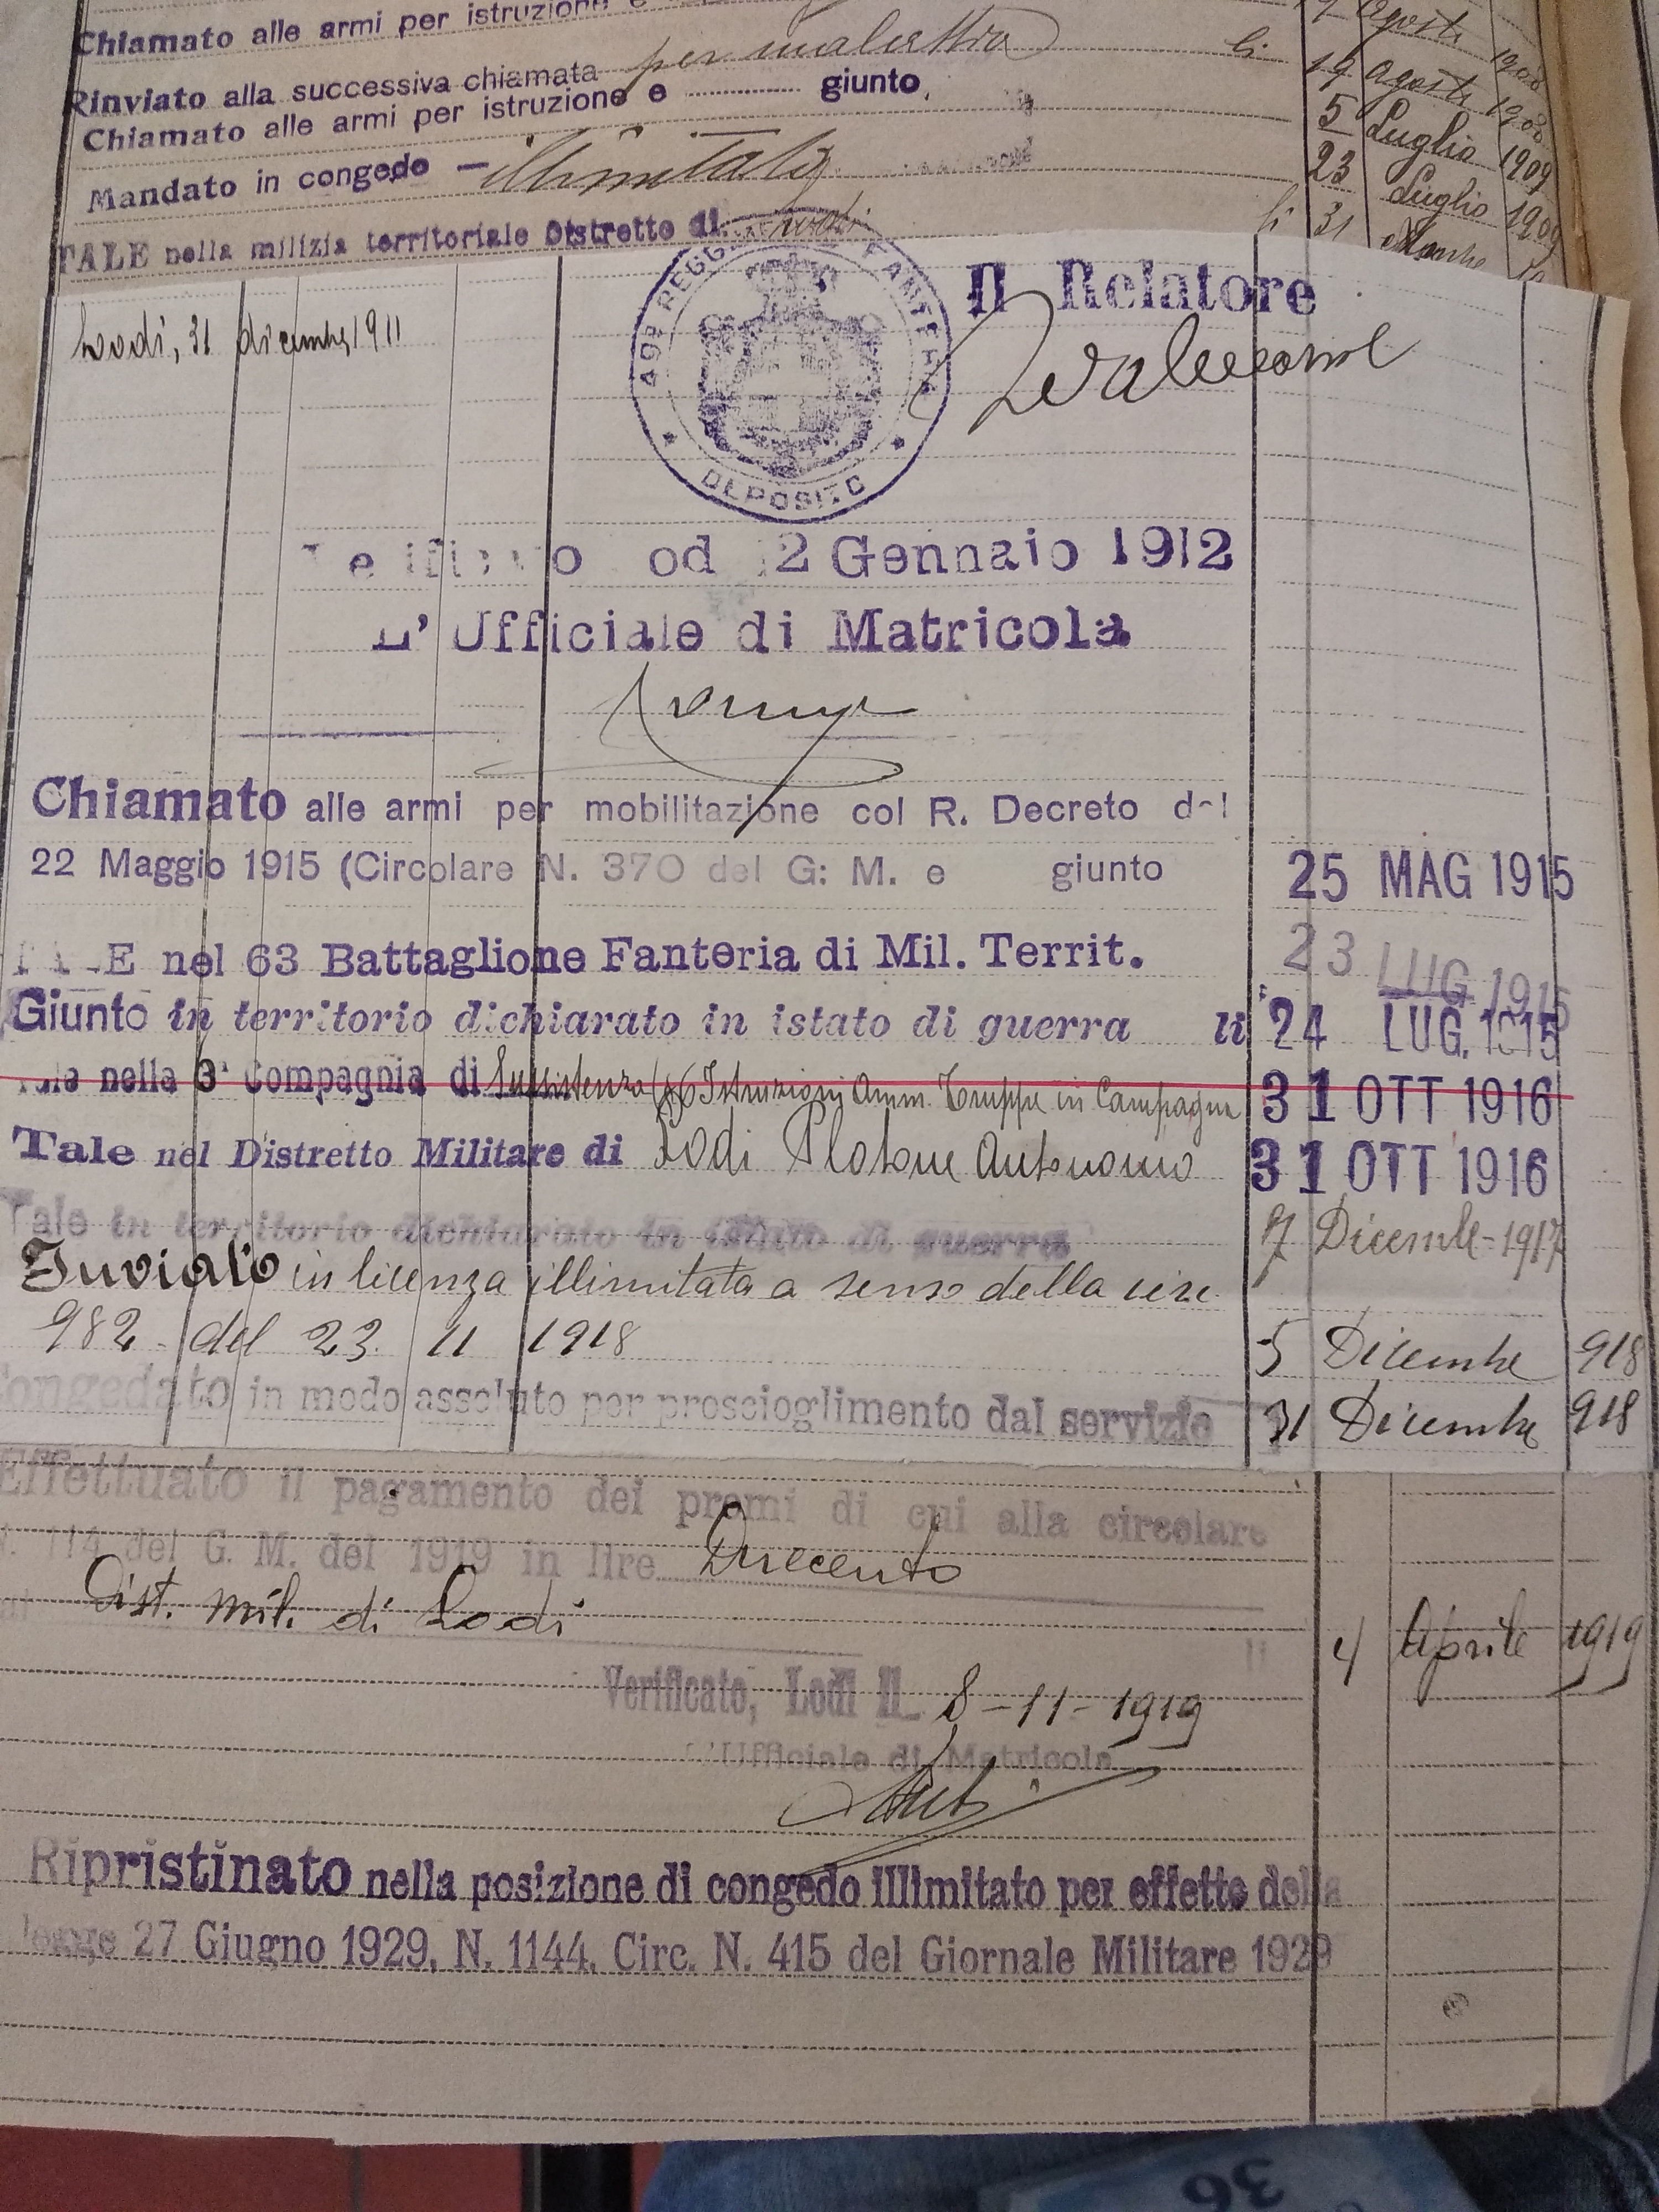 Chiamato alle armi per istruzione e
agosto 1908
Rinviato alla successiva chiamata per malattia li 19 agosto 1908
Chiamato alle armi per istruzione e giunto 5 Luglio 1909
Mandato in congedo — illimitato 23 Luglio 1909
TALE nella milizia territoriale Distretto di Lodi li 31
49º REGG FANTERIA
DEPOSITO
Il Relatore
Lodi, 31 dicembre 1911
od 2 Gennaio 1912
L' Ufficiale di Matricola
Chiamato alle armi per mobilitazione col R. Decreto del
22 Maggio 1915 (Circolare N. 370 del G: M. e giunto 25 MAG 1915
TALE nel 63 Battaglione Fanteria di Mil. Territ. 23 LUG 1915
Giunto in territorio dichiarato in istato di guerra li 24 LUG. 1915
Tale nella 3ª Compagnia di Sussistenza (§6 Istruzioni Amm. Truppe in Campagna 31 OTT 1916
Tale nel Distretto Militare di Lodi Plotone Autonomo 31 OTT 1916
Tale in territorio dichiarato in istato di guerra 7 Dicembre - 1917
Inviato in licenza illimitata a senso della circ.
982 del 23 11 1918 5 Dicembre 918
Congedato in modo assoluto per proscioglimento dal servizio 31 Dicembre 918
Effettuato il pagamento dei premi di cui alla circolare
N. 114 del G. M. del 1919 in lire Duecento
Dist. mil. di Lodi li 4 Aprile 1919
Verificato, Lodi li 8-11-1919
L'Ufficiale di Matricola
Ripristinato nella posizione di congedo illimitato per effetto della
legge 27 Giugno 1929, N. 1144. Circ. N. 415 del Giornale Militare 1929
36